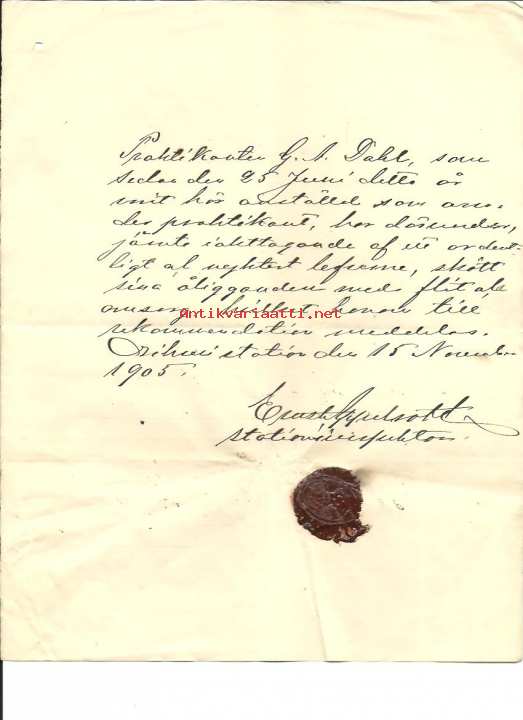 Praktikanten G. A. Dahl, som
sedan den 25 Juni detta år
varit här anställd som an-
der praktikant, har därunder,
jämte iakttagande af ett ordent-
ligt och nyktert lefverne, skött
sina åligganden med flit och
omsorg, hvilket honom till
Antikvariaatti.net
rekommendation meddelas.
station den 15 November
1905.
Ernst
stationsinspektor.